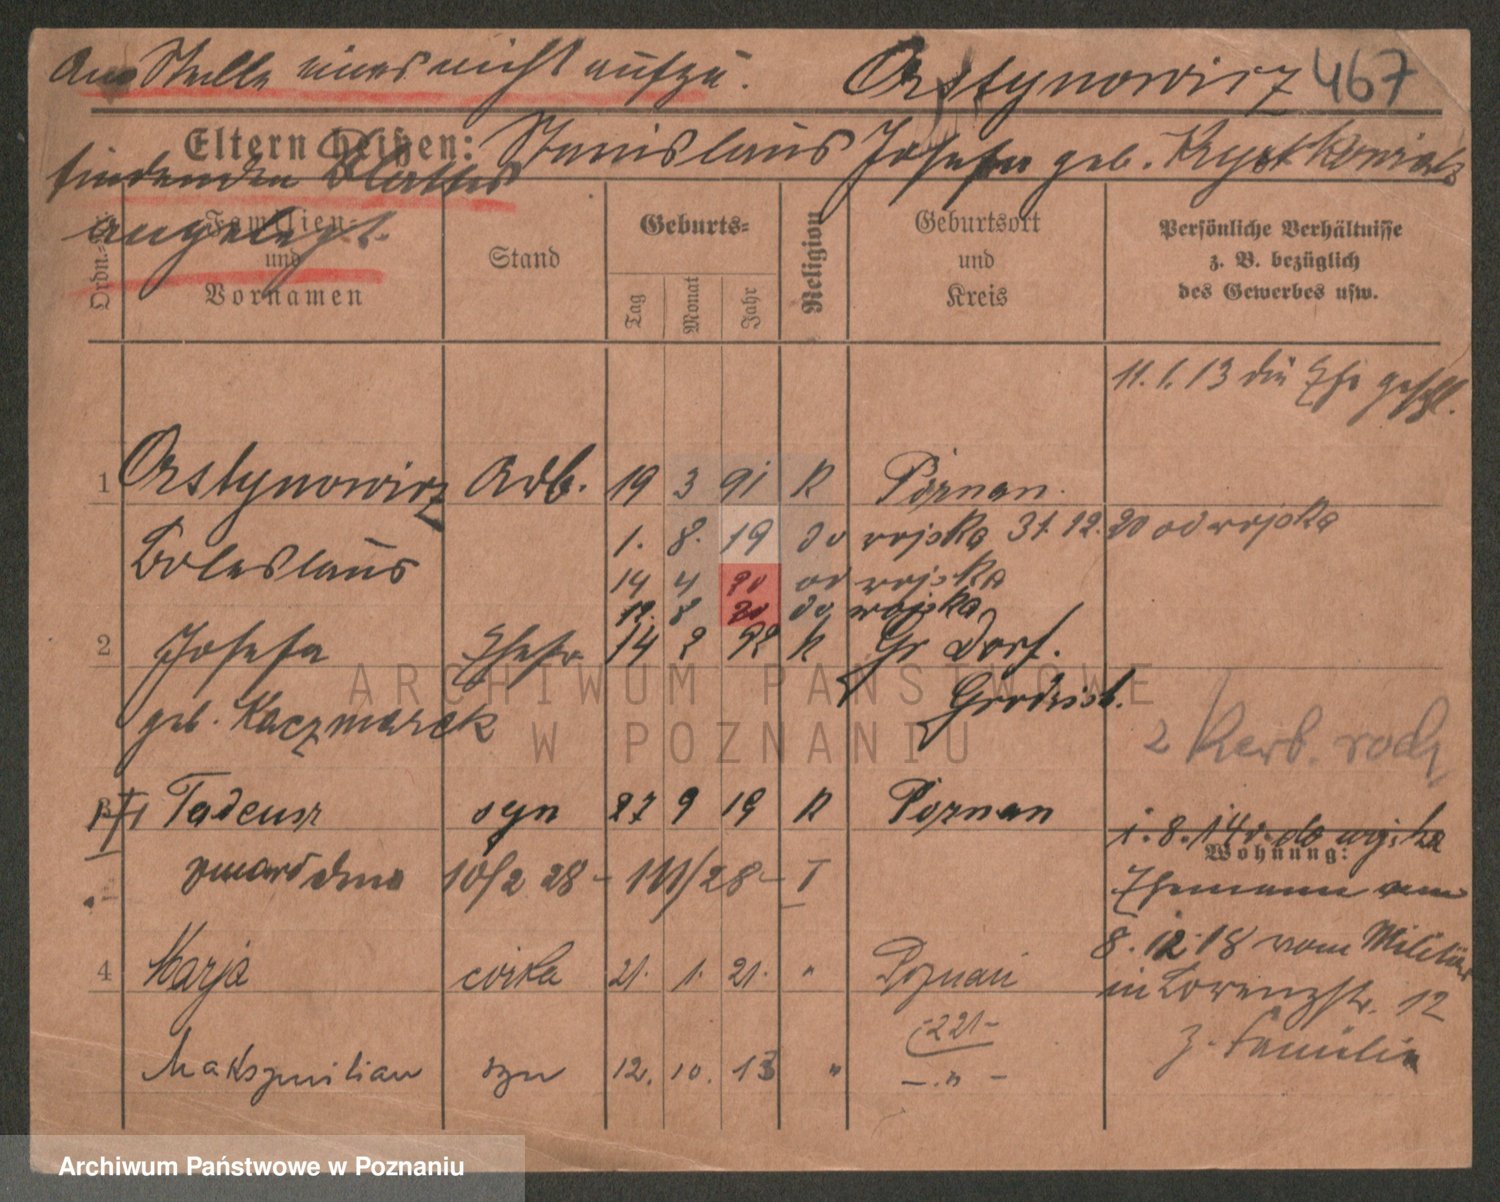 An Stelle eines nicht aufzu. Orstynowicz 467
Eltern heißen: Stanislaus Josefa geb.
findenden Blattes
angelegt.
Ordn.=
Familien=
und
Vornamen
Stand
Geburts=
Tag
Monat
Jahr
Religion
Geburtsort
und
Kreis
Persönliche Verhältnisse
z. B. bezüglich
des Gewerbes usw.
11.1.13 die Ehe geschl.
1 Orstynowicz Arb. 19 3 91 K Poznan.
Boleslaus 1. 8. 19 do wojska 31.12.20 od wojska
14 4 20 od wojska
8 20 do wojska
2 Josefa Ehefr 14 2 92 K Gr Dorf.
geb. Kaczmarek Grodzisk.
2 Kerb. rodz
Tadeusz syn 27 9 19 K Poznan
1.8.14 do wojska
Wohnung:
10/2 28 -
Ehemann am
4 Marja córka 21. 1. 21. " Poznań
8.12.18 vom Militär
in Lorenzstr. 12
-221-
z. Familie
Maksymilian syn 12. 10. 13 " - " -
ARCHIWUM PAŃSTWOWE
W POZNANIU
Archiwum Państwowe w Poznaniu